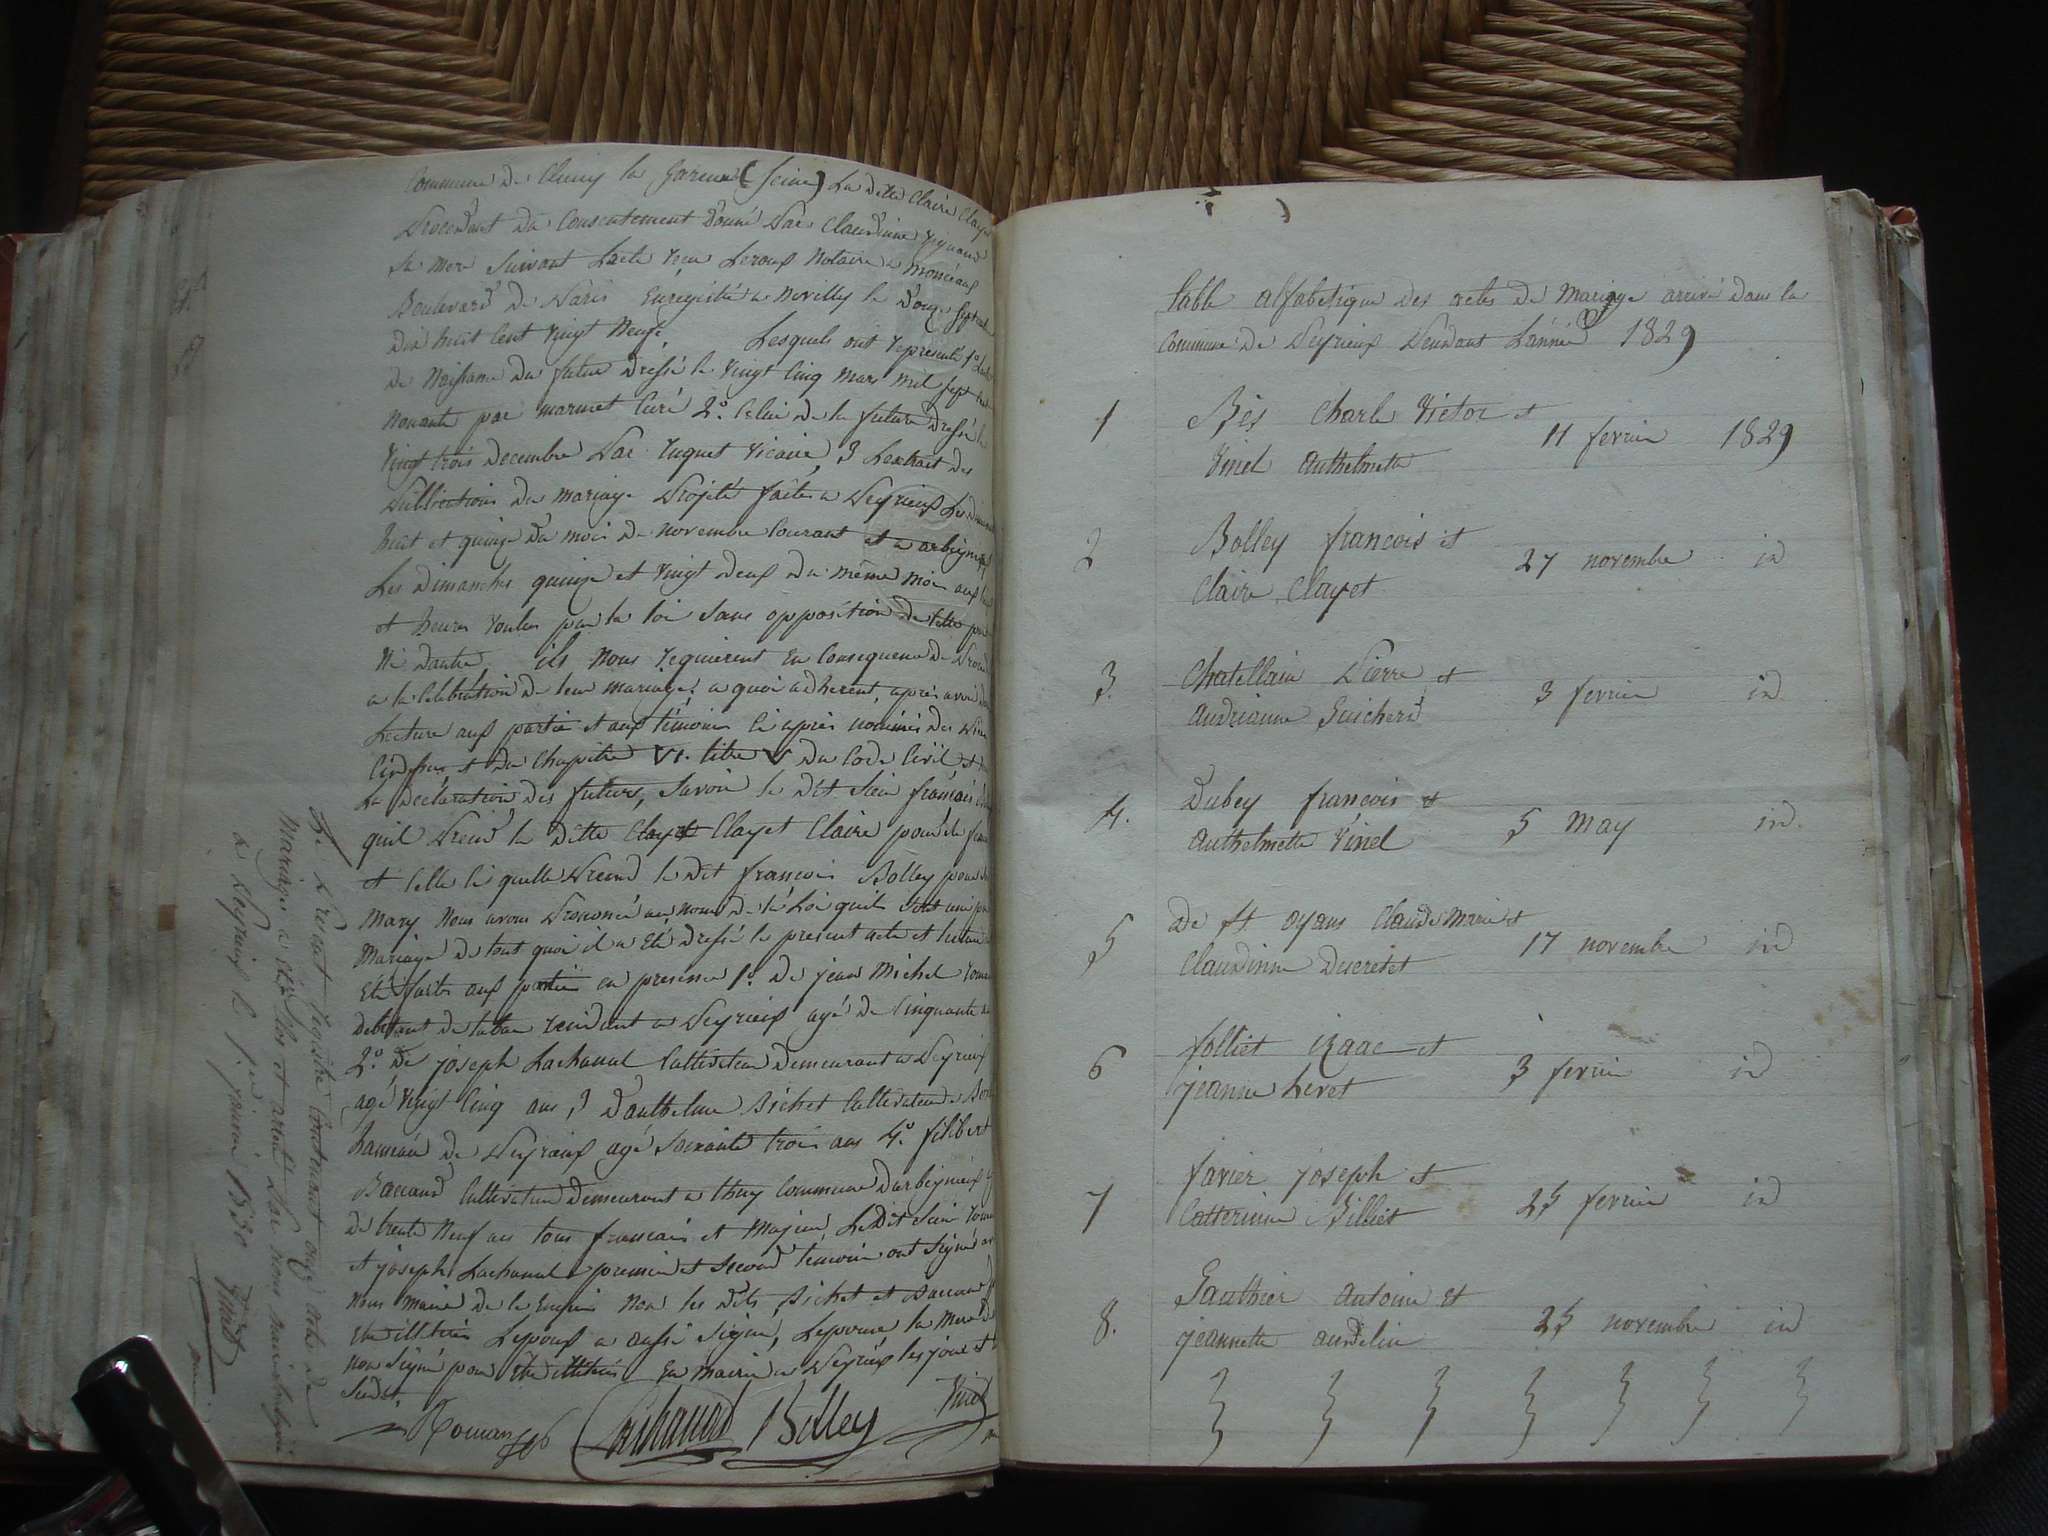 Commune de Clicny la Garenne (Seine) La ditte Claire Clayet
Procedant du Consentement Donné Par Claudinne
sa mere suivant Lacte recu Leroux Notaire a Monceaux
Boulevard de Paris Enregistré a Novelly le Douze septembre
dix huit Cent Vingt Neuf, Lesquels ont representé 1º
de Naissance du futur Dressé le Vingt Cinq Mars Mil sept Cent
Nonante par marmet Curé 2º. Celui de la future Dressé le
Vingt trois Decembre Par Vicaire, 3 Lextrait des
Publications du mariage Projeté faites a Peyrieux Les dimanches
huit et quinze du mois de novembre Courant et a arbignieux
Les dimanches quinze et Vingt deux du même mois aux lieux
et heures Voulus par la loi Sans opposition de telle part
Ni dautre. ils Nous requierent En Consequence de Proceder
a la Celebration de leur mariage, a quoi adherent, après avoir
Lecture aux parties et aux témoins Ci après nommés des
et du Chapitre VI. titre V du Code Civil et
La declaration des futurs, Savoir le Dit Sieur francois
quil Prend la Ditte Clayet Clayet Claire pour
et Celle Ci quelle Prend le Dit francois Bolley pour
Mary Nous avons Prononcé au nom de la Loi quils sont unis par
Mariage de tout quoi il a Eté Dressé le present acte et lecture
Eté faites aux parties en presence 1º. De jean Michel Roman
debitant de tabac residant a Peyrieux agé de Cinquante
2º De joseph Lachanal Cultivateur Demeurant a Peyrieux
agé Vingt Cinq ans, 3 Danthelme Bichet Cultivateur
hameau de Peyrieux agé Soixante trois ans 4º. filibert
Baccand Cultivateur Demeurant a thuy Commune Darbignieux
de trente Neuf ans tous francais et Majeurs, Le Dit Sieur Roman
et joseph Lachanal premier et Second temoin ont Signé avec
Nous Maire de Non les Dits Bichet et Baccand
Etre illiterés Lepoux a aussi Signé, Lepouse la Mere
non Signé pour Etre illiterés En Mairie a Peyrieux les jour et
Susdit.
Roman Lachanal Bolley Vinet
Le Present registre Contenant onze actes de
Mariages a été Clos et arreté Par nous maire soussigné
a Peyrieux le 1er. janvier 1830 Vinet
table alfabetique des actes de Mariage arrivé dans la
Commune de Peyrieux Pendant Lannée 1829
1 Bés Charle Victor et
Vinel Anthelmette 11 fevrier 1829
2 Bolley francois et
Claire Clayet 27 novembre id
3. Chatellain Pierre et
Andrianne Guicherd 3 fevrier id
4. Dubey francois et
Anthelmette Vinel 5 May id.
5 De st oyans Claude Marie et
Claudinne Ducretet 17 novembre id
6 folliet izaac et
jeanne Levet 3 fevrier id
7 favier joseph et
Catterinne Billiet 25 fevrier id
8. Gauthier Antoine et
jeannette andelin 25 novembre id